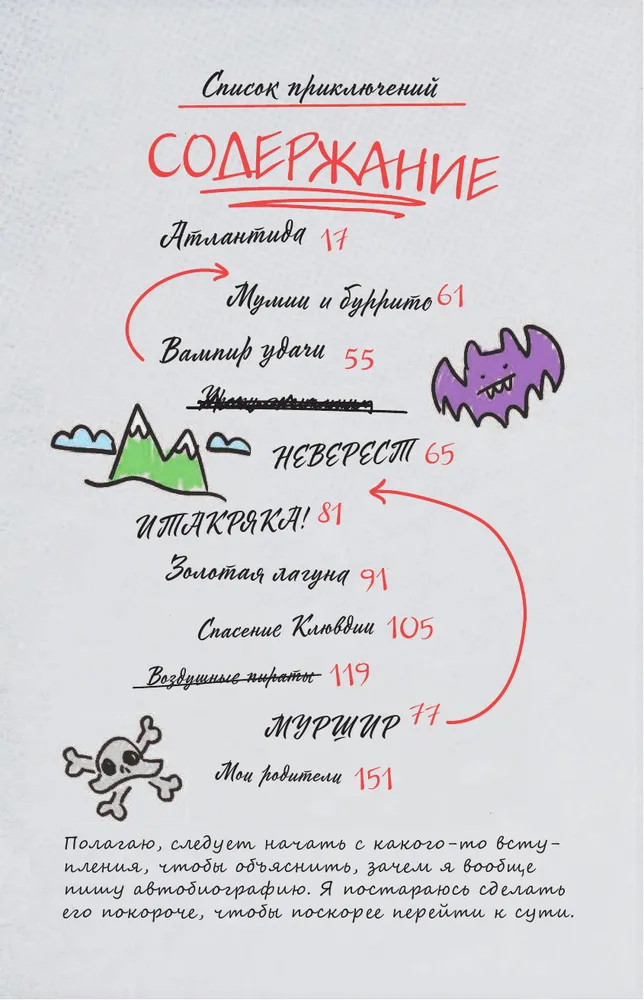 Список приключений
СОДЕРЖАНИЕ
Атлантида 17
Мумии и буррито 61
Вампир удачи 55
НЕВЕРЕСТ 65
ИТАКРЯКА! 81
Золотая лагуна 91
Спасение Клювдии 105
Воздушные пираты 119
МУРШИР 77
Мои родители 151
Полагаю, следует начать с какого-то всту-
пления, чтобы объяснить, зачем я вообще
пишу автобиографию. Я постараюсь сделать
его покороче, чтобы поскорее перейти к сути.